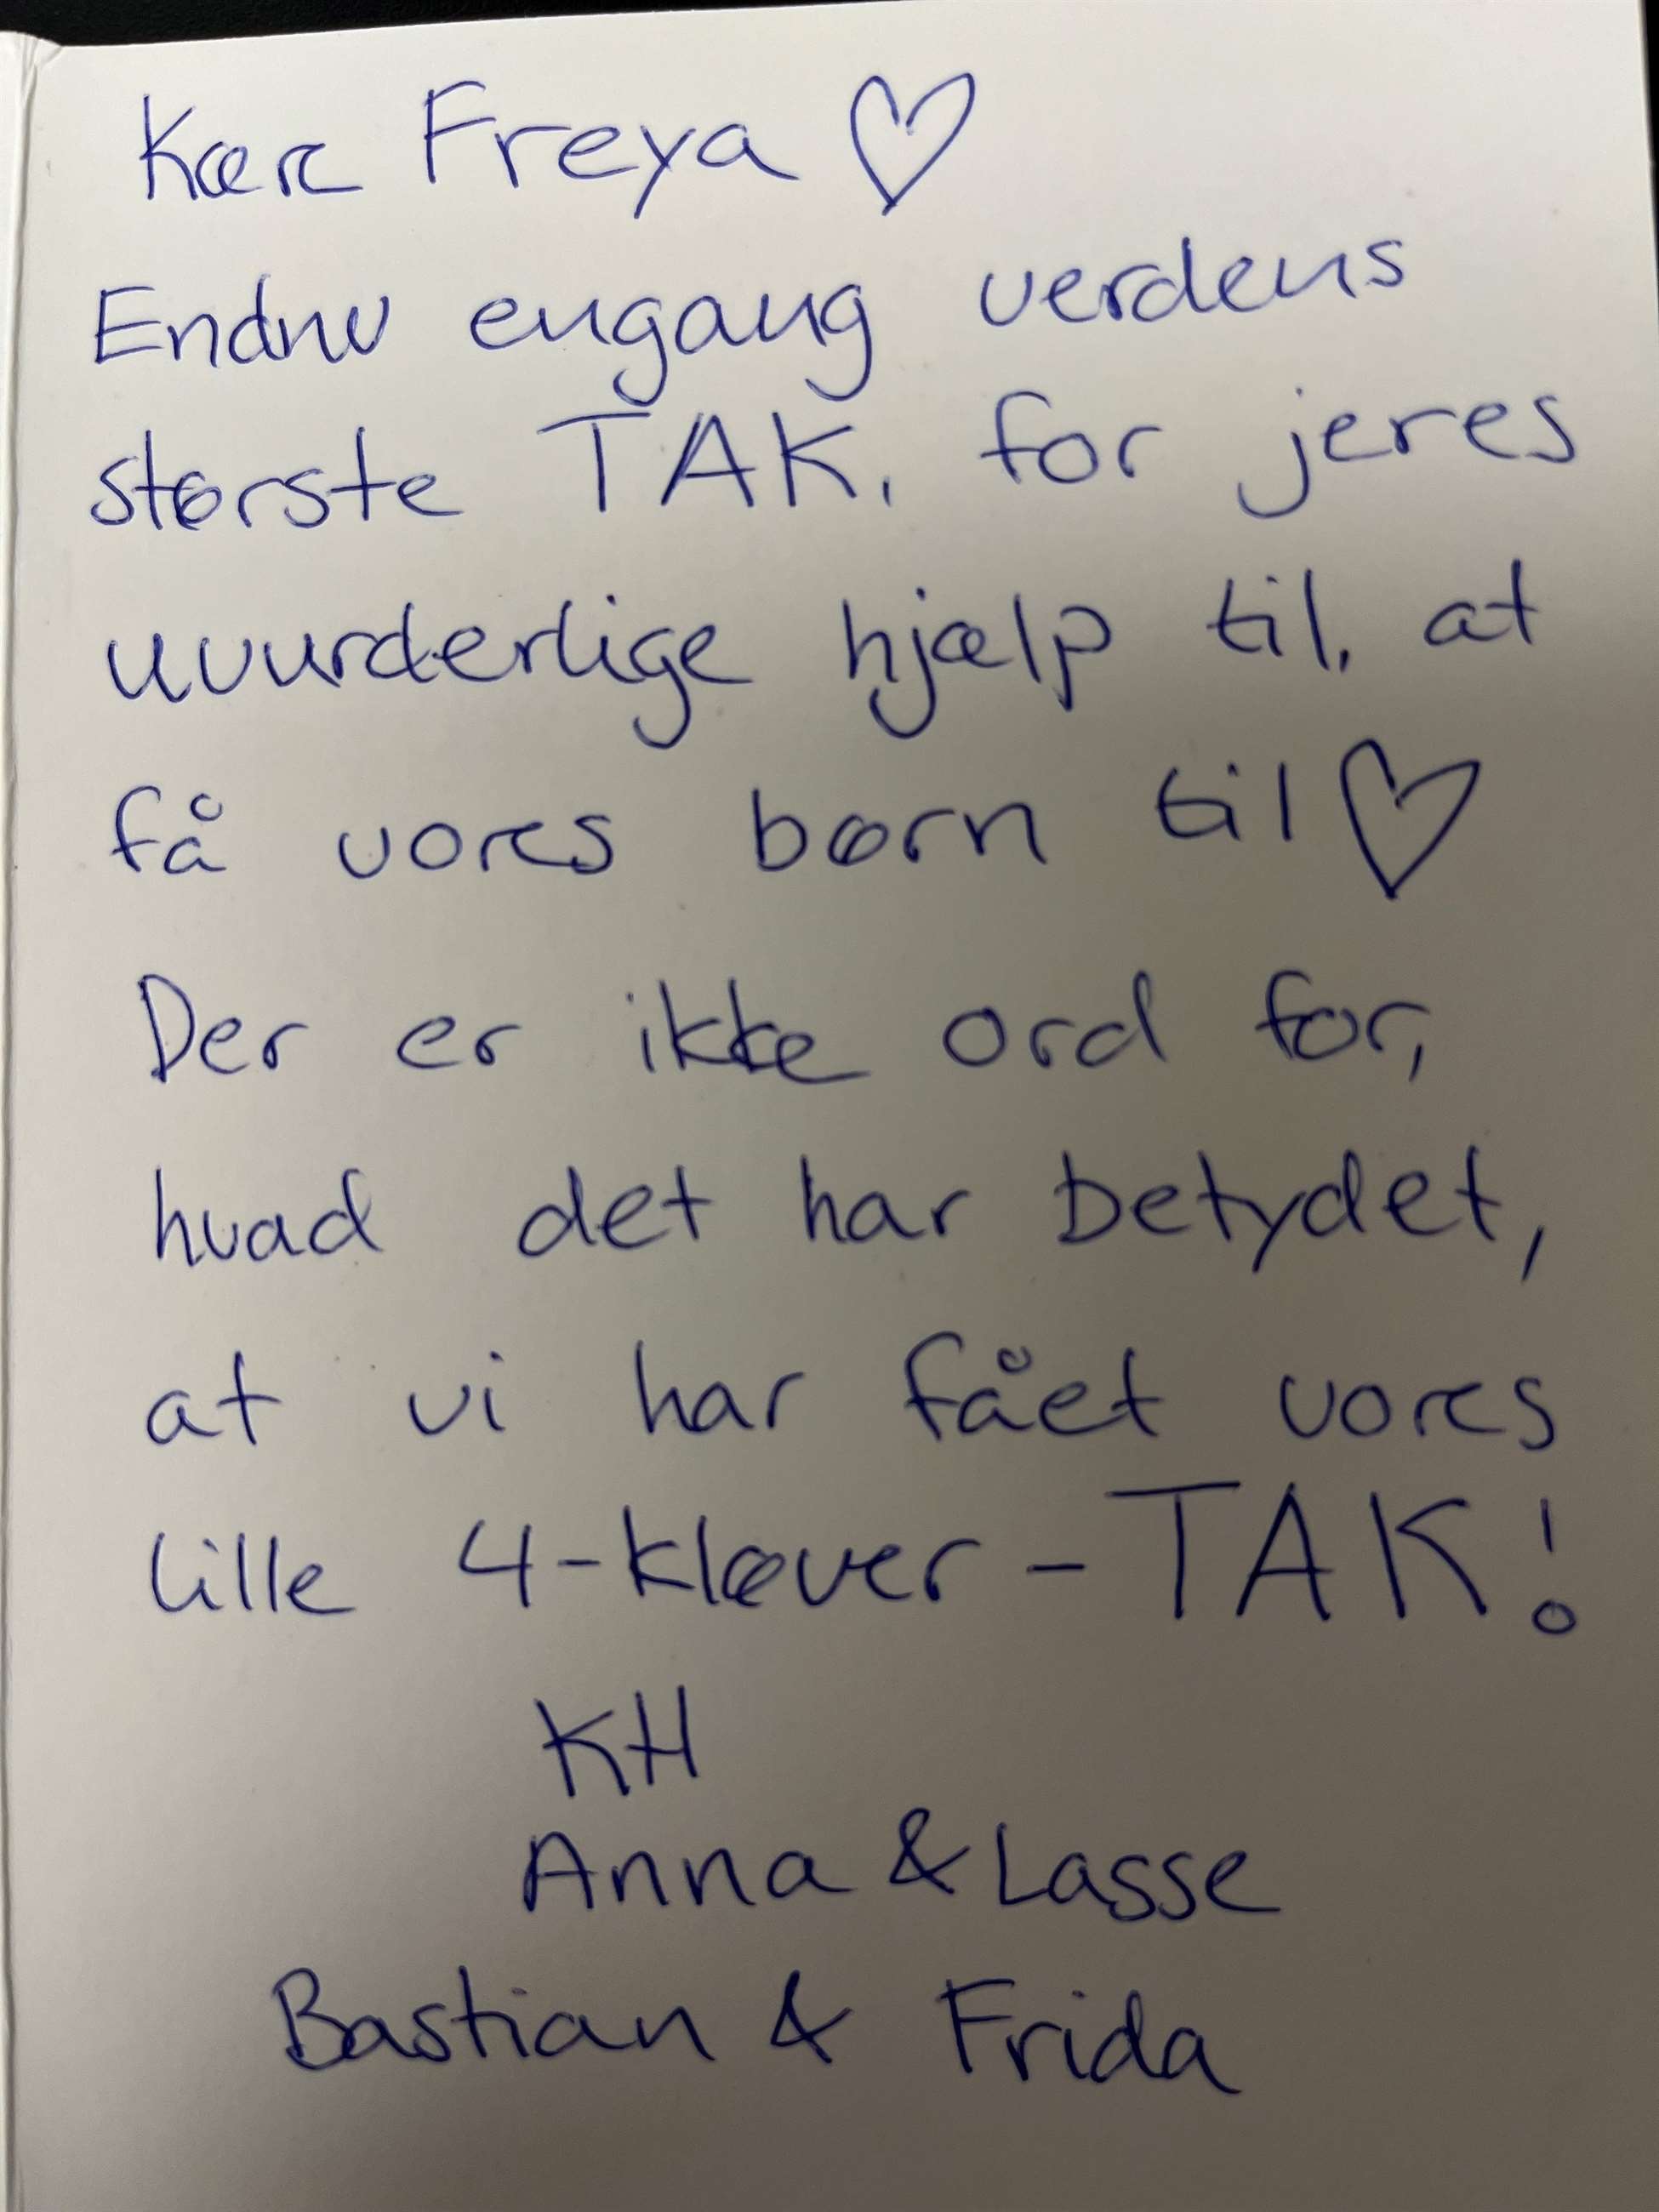 Kære Freya ♡
Endnu engang verdens
største TAK, for jeres
uvurderlige hjælp til, at
få vores børn til ♡
Der er ikke ord for,
hvad det har betydet,
at vi har fået vores
lille 4-kløver - TAK!
KH
Anna & Lasse
Bastian & Frida